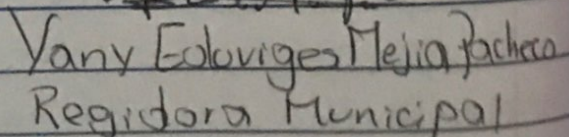 Yany Eduviges Mejia Pacheco
Regidora Municipal